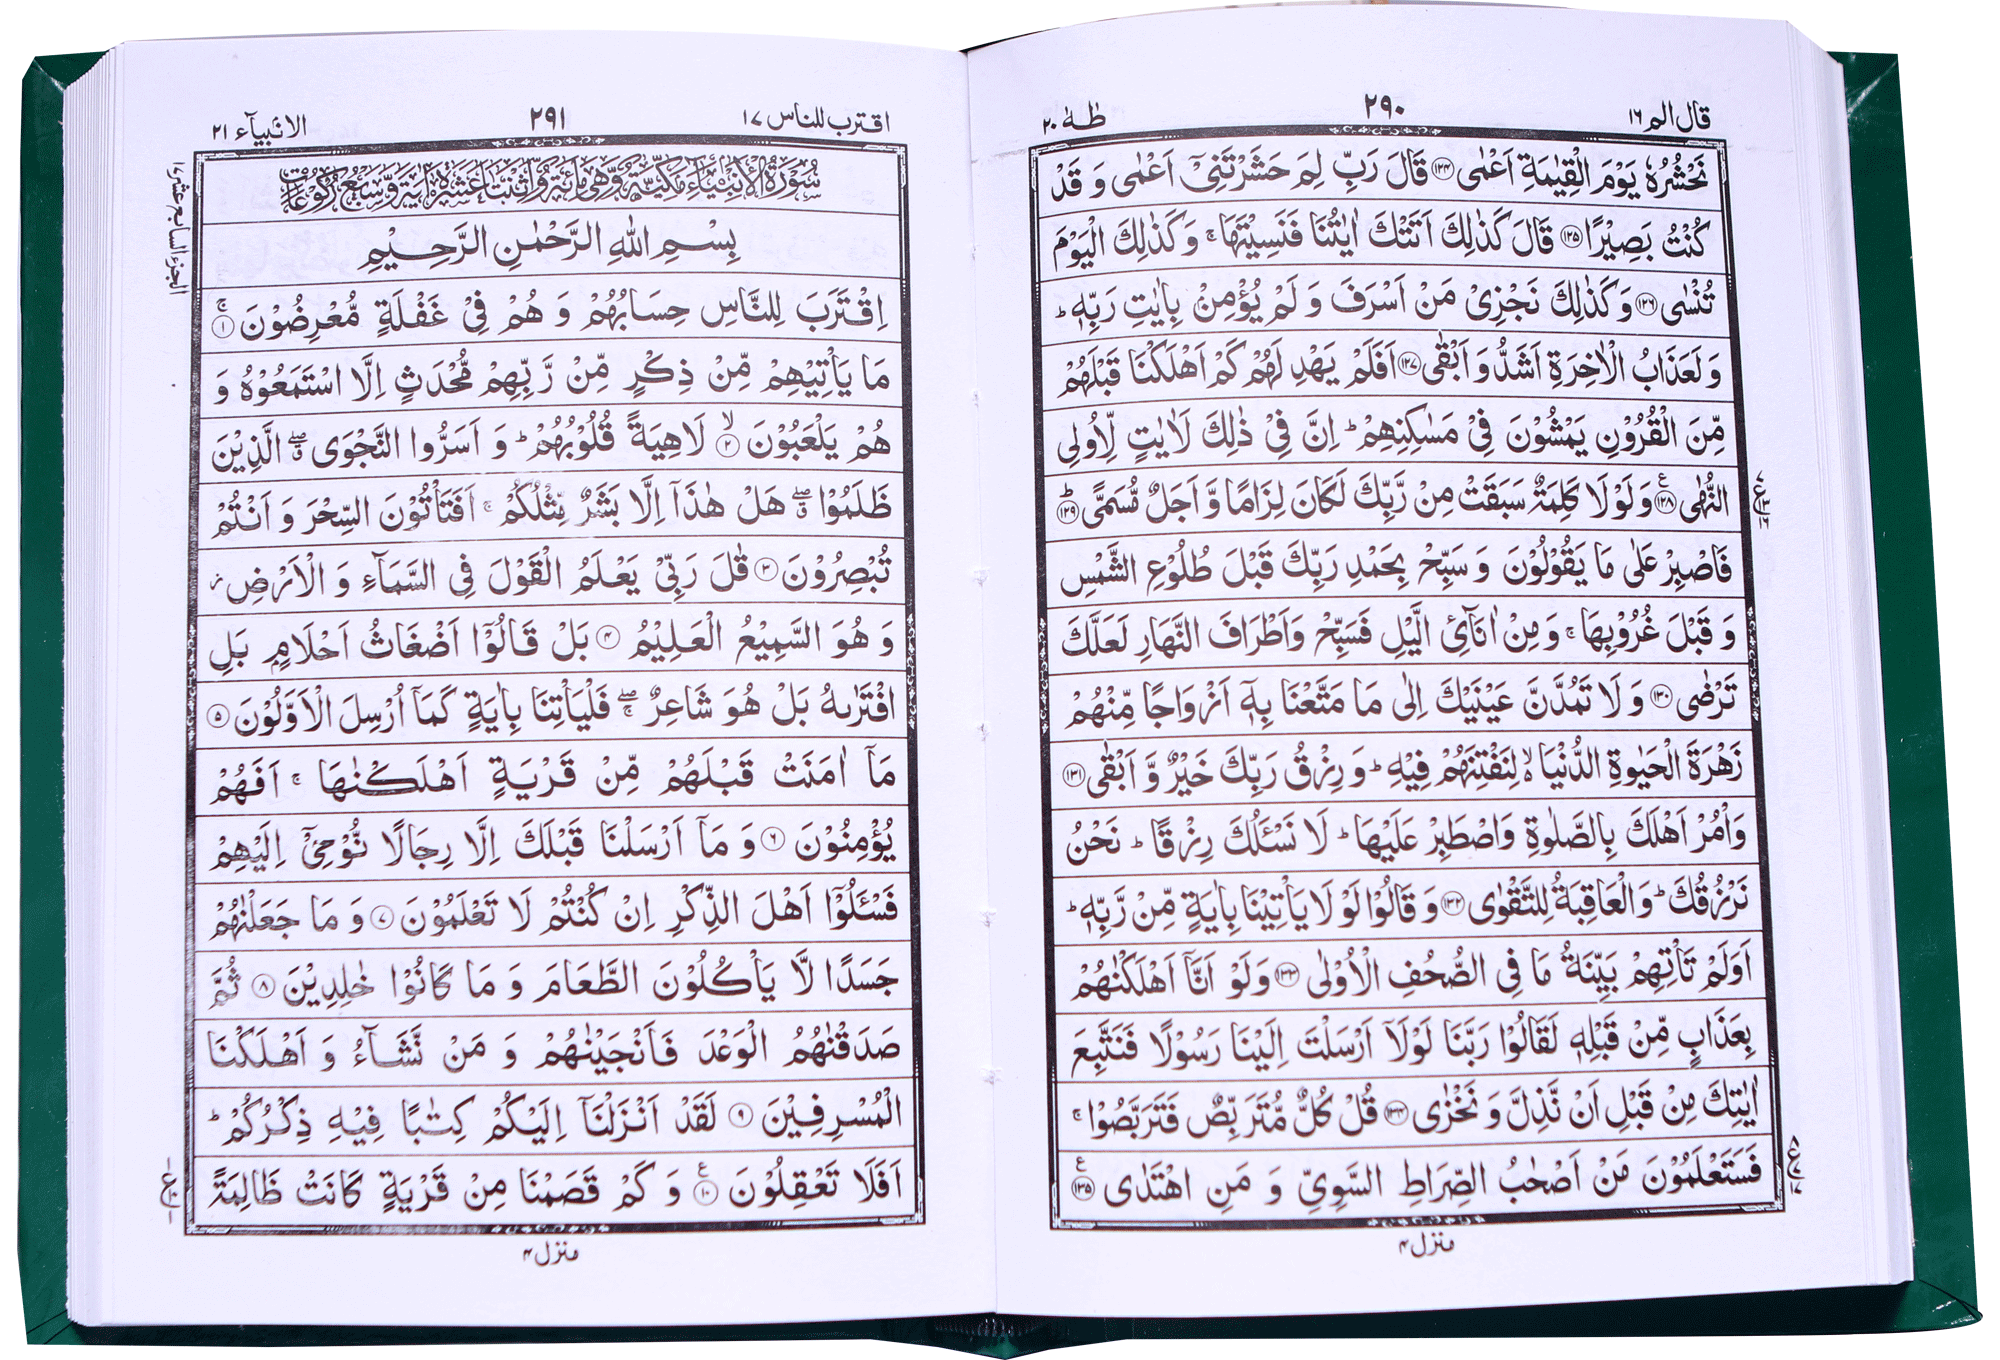 قال الم ١٦
٢٩٠
طٰهٰ ٢٠
نَحْشُرُهٗ یَوْمَ الْقِیٰمَةِ اَعْمٰی ﴿۱۲۴﴾ قَالَ رَبِّ لِمَ حَشَرْتَنِیْۤ اَعْمٰی وَ قَدْ
كُنْتُ بَصِیْرًا ﴿۱۲۵﴾ قَالَ كَذٰلِكَ اَتَتْكَ اٰیٰتُنَا فَنَسِیْتَهَا ۚ وَ كَذٰلِكَ الْیَوْمَ
تُنْسٰی ﴿۱۲۶﴾ وَ كَذٰلِكَ نَجْزِیْ مَنْ اَسْرَفَ وَ لَمْ یُؤْمِنْۢ بِاٰیٰتِ رَبِّهٖ ؕ
وَ لَعَذَابُ الْاٰخِرَةِ اَشَدُّ وَ اَبْقٰی ﴿۱۲۷﴾ اَفَلَمْ یَهْدِ لَهُمْ كَمْ اَهْلَكْنَا قَبْلَهُمْ
مِّنَ الْقُرُوْنِ یَمْشُوْنَ فِیْ مَسٰكِنِهِمْ ؕ اِنَّ فِیْ ذٰلِكَ لَاٰیٰتٍ لِّاُولِی
النُّهٰی ﴿۱۲۸﴾ وَ لَوْ لَا كَلِمَةٌ سَبَقَتْ مِنْ رَّبِّكَ لَكَانَ لِزَامًا وَّ اَجَلٌ مُّسَمًّی ﴿۱۲۹﴾
فَاصْبِرْ عَلٰی مَا یَقُوْلُوْنَ وَ سَبِّحْ بِحَمْدِ رَبِّكَ قَبْلَ طُلُوْعِ الشَّمْسِ
وَ قَبْلَ غُرُوْبِهَا ۚ وَ مِنْ اٰنَآئِ الَّیْلِ فَسَبِّحْ وَ اَطْرَافَ النَّهَارِ لَعَلَّكَ
تَرْضٰی ﴿۱۳۰﴾ وَ لَا تَمُدَّنَّ عَیْنَیْكَ اِلٰی مَا مَتَّعْنَا بِهٖۤ اَزْوَاجًا مِّنْهُمْ
زَهْرَةَ الْحَیٰوةِ الدُّنْیَا ۙ۬ لِنَفْتِنَهُمْ فِیْهِ ؕ وَ رِزْقُ رَبِّكَ خَیْرٌ وَّ اَبْقٰی ﴿۱۳۱﴾
وَاْمُرْ اَهْلَكَ بِالصَّلٰوةِ وَ اصْطَبِرْ عَلَیْهَا ؕ لَا نَسْـَٔلُكَ رِزْقًا ؕ نَحْنُ
نَرْزُقُكَ ؕ وَ الْعَاقِبَةُ لِلتَّقْوٰی ﴿۱۳۲﴾ وَ قَالُوْا لَوْ لَا یَاْتِیْنَا بِاٰیَةٍ مِّنْ رَّبِّهٖ ؕ
اَوَ لَمْ تَاْتِهِمْ بَیِّنَةُ مَا فِی الصُّحُفِ الْاُوْلٰی ﴿۱۳۳﴾ وَ لَوْ اَنَّاۤ اَهْلَكْنٰهُمْ
بِعَذَابٍ مِّنْ قَبْلِهٖ لَقَالُوْا رَبَّنَا لَوْ لَاۤ اَرْسَلْتَ اِلَیْنَا رَسُوْلًا فَنَتَّبِعَ
اٰیٰتِكَ مِنْ قَبْلِ اَنْ نَّذِلَّ وَ نَخْزٰی ﴿۱۳۴﴾ قُلْ كُلٌّ مُّتَرَبِّصٌ فَتَرَبَّصُوْا ۚ
فَسَتَعْلَمُوْنَ مَنْ اَصْحٰبُ الصِّرَاطِ السَّوِیِّ وَ مَنِ اهْتَدٰی ﴿۱۳۵﴾
منزل ۴
اقترب للناس ١٧
٢٩١
الانبیآء ٢١
سُوْرَةُ الْاَنْۢبِیَآءِ مَكِّیَّةٌ وَّهِیَ مِائَةٌ وَّاثْنَتَا عَشْرَةَ اٰیَةً وَّسَبْعُ رُكُوْعَاتٍ
بِسْمِ اللّٰهِ الرَّحْمٰنِ الرَّحِیْمِ
اِقْتَرَبَ لِلنَّاسِ حِسَابُهُمْ وَ هُمْ فِیْ غَفْلَةٍ مُّعْرِضُوْنَ ۚ﴿۱﴾
مَا یَاْتِیْهِمْ مِّنْ ذِكْرٍ مِّنْ رَّبِّهِمْ مُّحْدَثٍ اِلَّا اسْتَمَعُوْهُ وَ
هُمْ یَلْعَبُوْنَ ۙ﴿۲﴾ لَاهِیَةً قُلُوْبُهُمْ ؕ وَ اَسَرُّوا النَّجْوَی ۖۗ الَّذِیْنَ
ظَلَمُوْا ۖۗ هَلْ هٰذَاۤ اِلَّا بَشَرٌ مِّثْلُكُمْ ۚ اَفَتَاْتُوْنَ السِّحْرَ وَ اَنْتُمْ
تُبْصِرُوْنَ ﴿۳﴾ قٰلَ رَبِّیْ یَعْلَمُ الْقَوْلَ فِی السَّمَآءِ وَ الْاَرْضِ ؗ
وَ هُوَ السَّمِیْعُ الْعَلِیْمُ ﴿۴﴾ بَلْ قَالُوْۤا اَضْغَاثُ اَحْلَامٍۭ بَلِ
افْتَرٰىهُ بَلْ هُوَ شَاعِرٌ ۖۚ فَلْیَاْتِنَا بِاٰیَةٍ كَمَاۤ اُرْسِلَ الْاَوَّلُوْنَ ﴿۵﴾
مَاۤ اٰمَنَتْ قَبْلَهُمْ مِّنْ قَرْیَةٍ اَهْلَكْنٰهَا ۚ اَفَهُمْ
یُؤْمِنُوْنَ ﴿۶﴾ وَ مَاۤ اَرْسَلْنَا قَبْلَكَ اِلَّا رِجَالًا نُّوْحِیْۤ اِلَیْهِمْ
فَسْـَٔلُوْۤا اَهْلَ الذِّكْرِ اِنْ كُنْتُمْ لَا تَعْلَمُوْنَ ﴿۷﴾ وَ مَا جَعَلْنٰهُمْ
جَسَدًا لَّا یَاْكُلُوْنَ الطَّعَامَ وَ مَا كَانُوْا خٰلِدِیْنَ ﴿۸﴾ ثُمَّ
صَدَقْنٰهُمُ الْوَعْدَ فَاَنْجَیْنٰهُمْ وَ مَنْ نَّشَآءُ وَ اَهْلَكْنَا
الْمُسْرِفِیْنَ ﴿۹﴾ لَقَدْ اَنْزَلْنَاۤ اِلَیْكُمْ كِتٰبًا فِیْهِ ذِكْرُكُمْ ؕ
اَفَلَا تَعْقِلُوْنَ ﴿۱۰﴾ وَ كَمْ قَصَمْنَا مِنْ قَرْیَةٍ كَانَتْ ظَالِمَةً
الجزء السابع عشر ١٧
منزل ۴